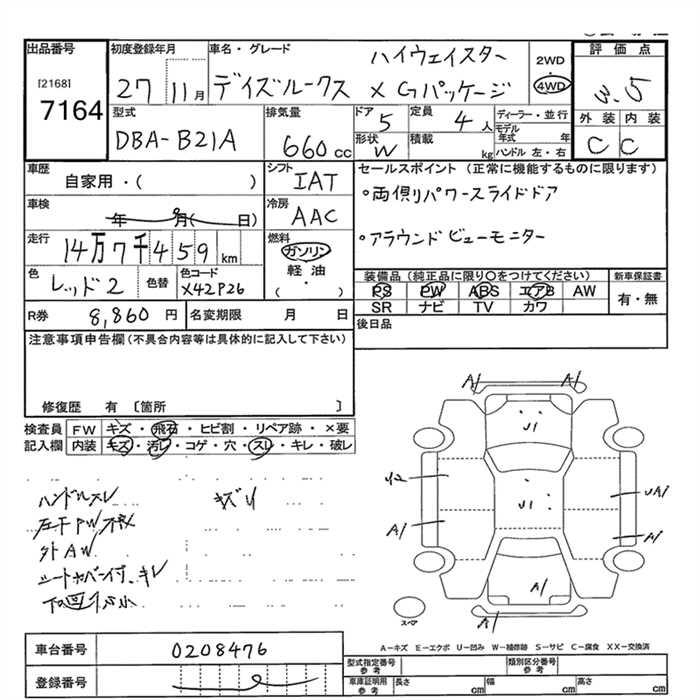 出品番号
[2168]
7164
初度登録年月
27 11月
車名・グレード
ハイウェイスター
デイズルークス X Gパッケージ
2WD
4WD
評価点
3.5
外装 内装
C C
型式
DBA-B21A
排気量
660 cc
ドア
5
定員
4人
形状
W
積載
kg
ディーラー・並行
モデル年式 年
ハンドル 左・右
車歴
自家用・( )
シフト
IAT
セールスポイント (正常に機能するものに限ります)
・両側リパワースライドドア
・アラウンドビューモニター
車検
年 月( 日)
冷房
AAC
走行
14万7千459 km
燃料
ガソリン
軽油
( )
色
レッド2
色替
色コード
X42P26
装備品 (純正品に限り○をつけてください)
PS PW ABS エアB AW
SR ナビ TV カワ
新車保証書
有・無
R券
8,860 円
名変期限 月 日
後日品
注意事項申告欄 (不具合内容等は具体的に記入して下さい)
修復歴 有 〔箇所 〕
検査員
記入欄
FW キズ・飛石・ヒビ割・リペア跡・×要
内装 キズ・汚レ・コゲ・穴・スレ・キレ・破レ
ハンドルスレ
キズリ
外AW
シートカバー付、キレ
A1 A1
U1
U2
U1
UA1
A1
A1
A1
A1
スペア
A-キズ E-エクボ U-凹み W-補修跡 S-サビ C-腐食 XX-交換済
車台番号
0208476
登録番号
型式指定番号
参考
類別区分番号
参考
車庫証明用
参考
長さ cm
幅 cm
高さ cm